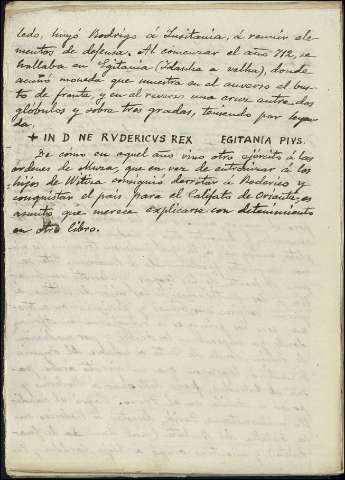 ledo, huyó Rodrigo á Lusitania, á reunir ele-
mentos de defensa. Al comenzar el año 712, se
hallaba en Egitania (Idanha a velha), donde
acuñó moneda que muestra en el anverso el bus-
to de frente, y en el reverso una cruz entre dos
glóbulos y sobre tres gradas, teniendo por leyen-
da,
+ IN D NE RVDERICVS REX EGITANIA PIVS.
De cómo en aquel año vino otro ejército á las
órdenes de Muza, que en vez de entronizar á los
hijos de Witiza consiguió derrotar á Roderico y
conquistar el país para el Califato de Oriente, es
asunto que merece explicarse con detenimiento
en otro libro.